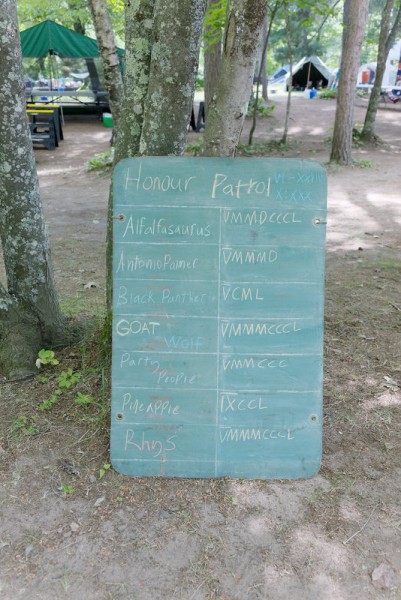 Honour Patrol
Alfalfasaurus V̅MMDCCCL
AntonioPalmer V̅MMMD
Black Panther V̅CML
GOAT Wolf V̅MMMCCCL
Party People V̅MMCCC
Pineapple I̅X̅CCL
Rhys V̅MMMCCCL